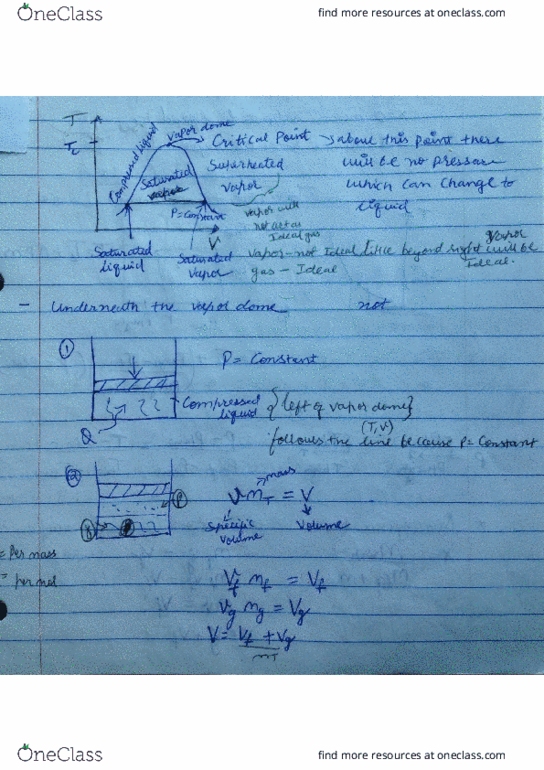 OneClass
find more resources at oneclass.com
T
Tc
Compressed liquid
vapor dome
Critical Point → about this point there
will be no pressure
which can change to
liquid
Saturated
Superheated
vapor
P=Constant
vapor will
not act as
Ideal gas
V
Saturated
liquid
Saturated
vapor
vapor - not Ideal little beyond right will be
Vapor
Ideal.
gas - Ideal
- Underneath the vapor dome not
①
P = Constant
Compressed
liquid
{left of vapor dome}
(T,V)
follows the line because P = Constant
Q
②
mass
v mT = V
Specific
volume
Volume
= Per mass
= per mol
Vf mf = Vf
Vg mg = Vg
V = Vf + Vg
mT
OneClass
find more resources at oneclass.com